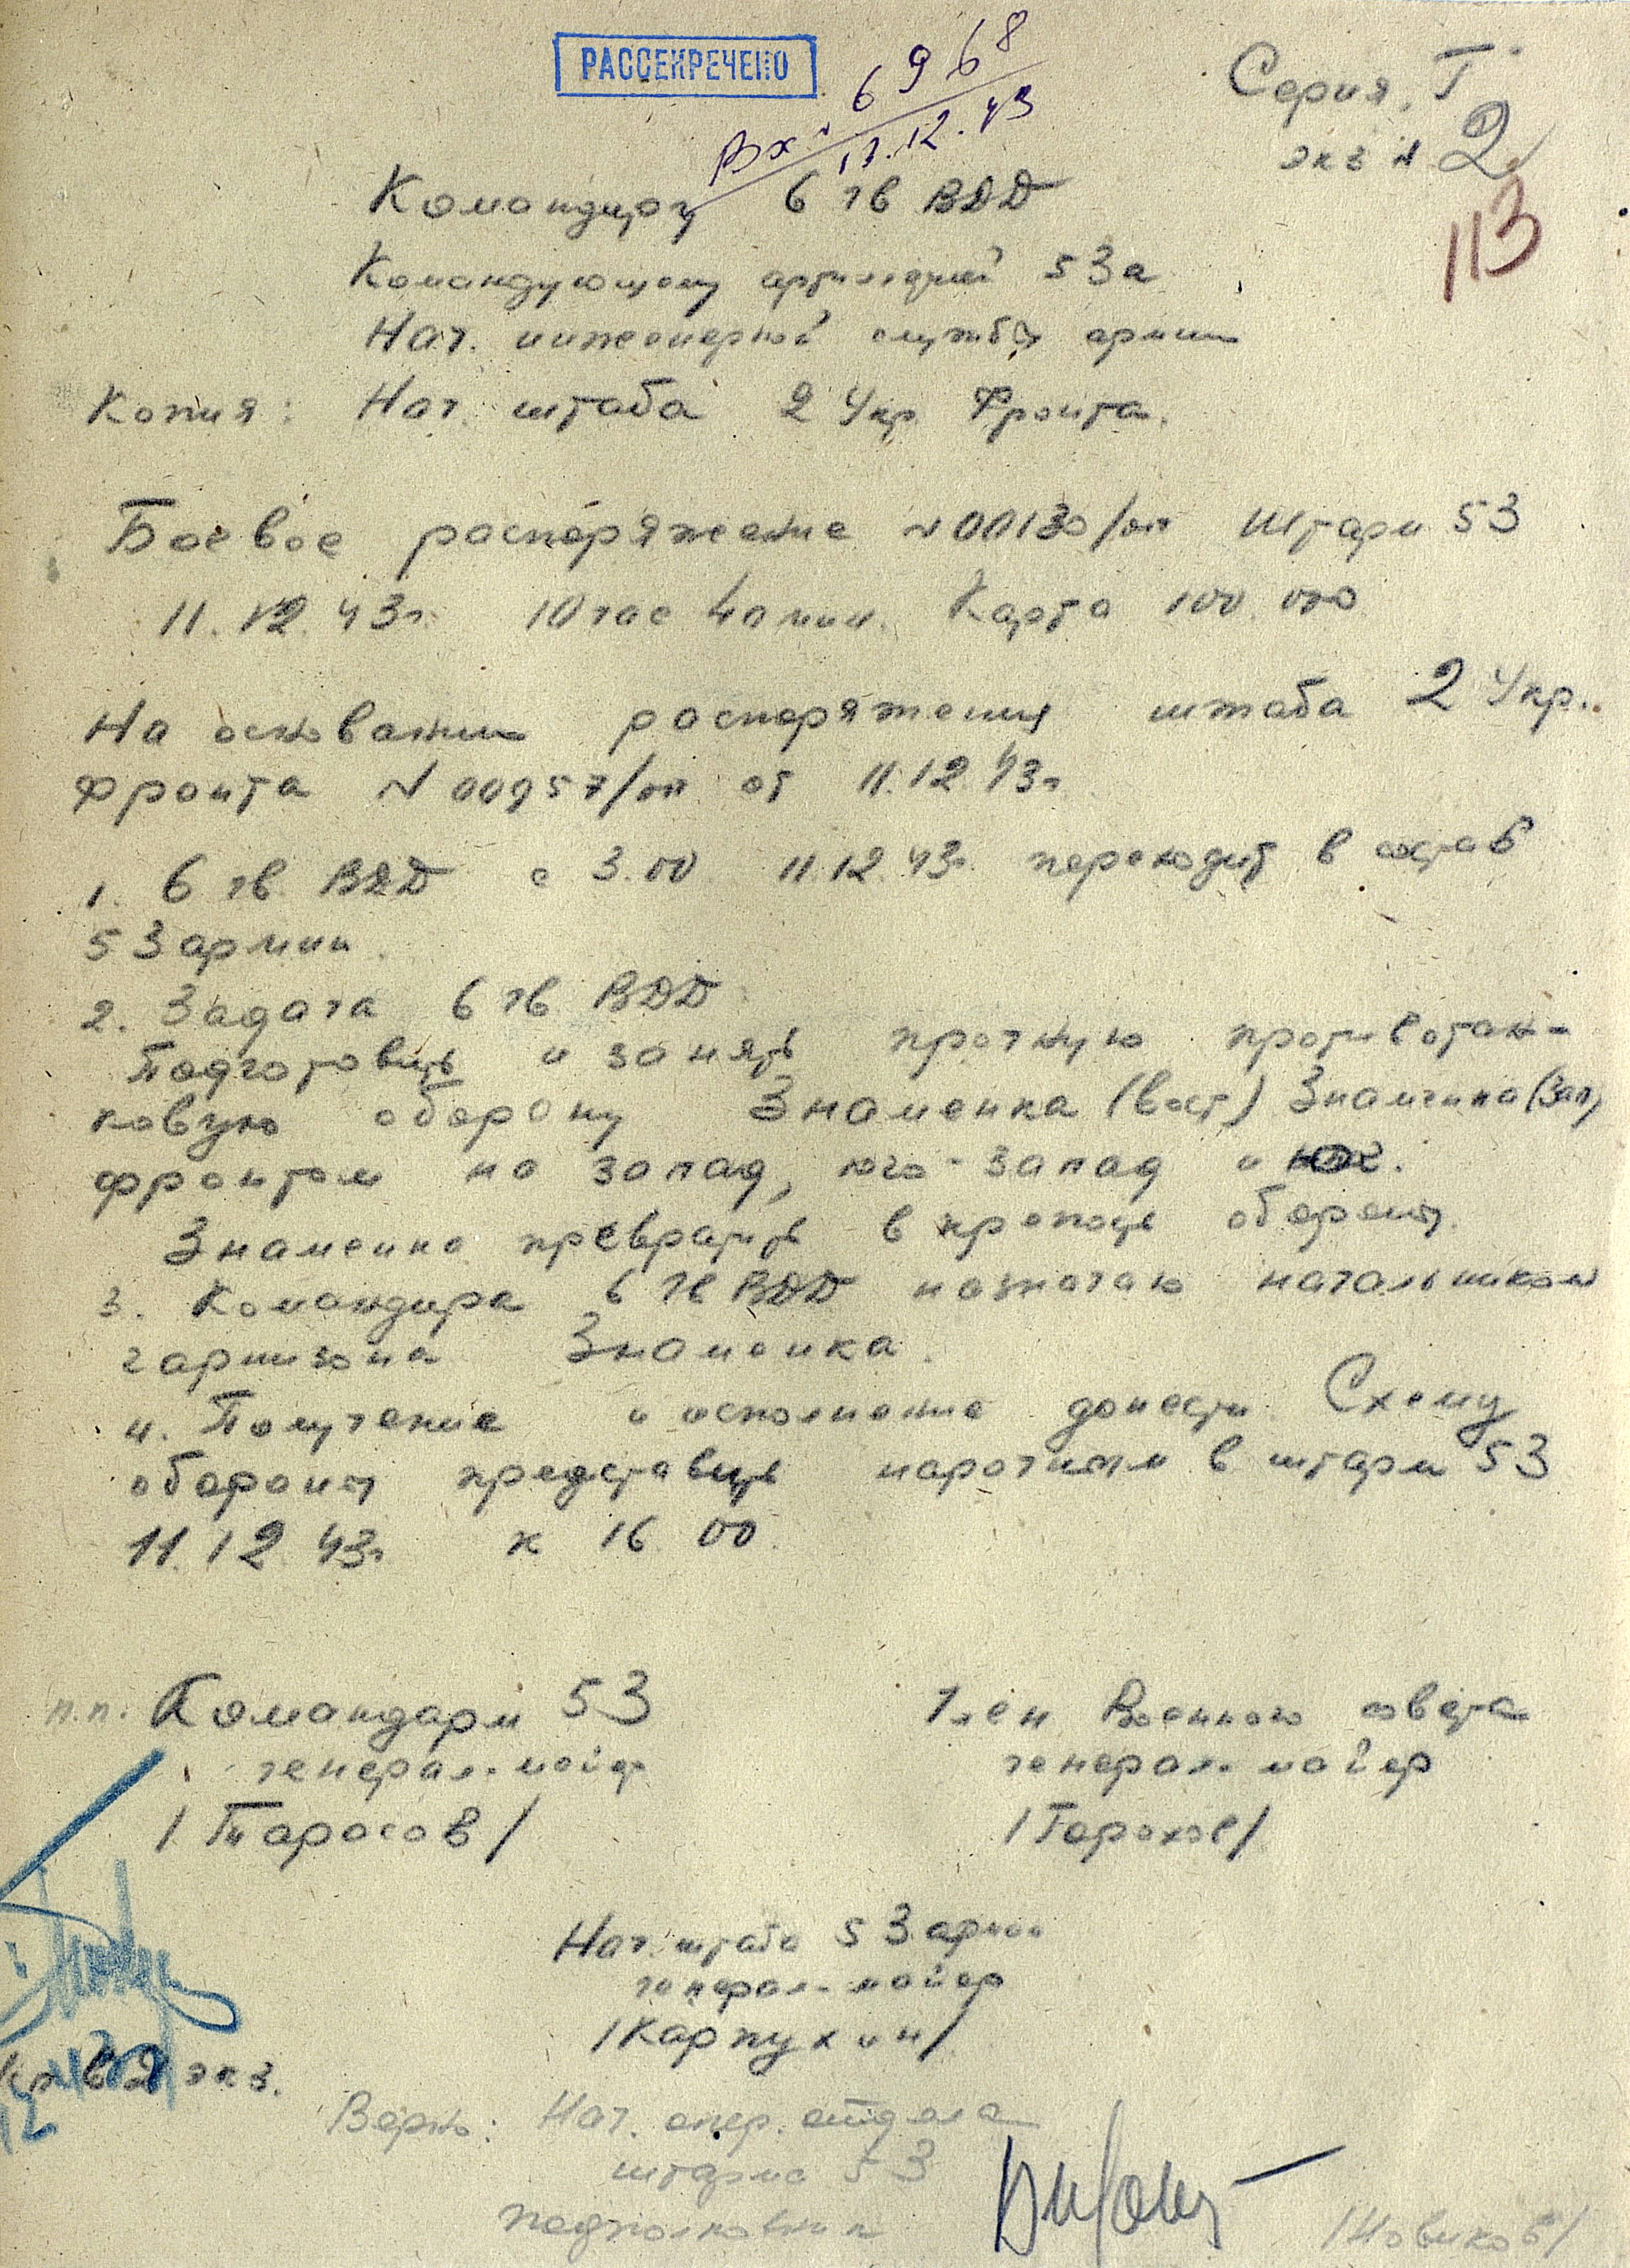 РАССЕКРЕЧЕНО
Вх. 6968
11.12.43
Серия "Г"
экз N 2
113
Командиру 6 гв ВДД
Командующему артиллерией 53а
Нач. инженерной службы армии
Копия: Нач. штаба 2 Укр. Фронта.
Боевое распоряжение N 00130/оп Штарм 53
11.12.43г. 10 час 40 мин. Карта 100.000
На основании распоряжения штаба 2 Укр.
фронта N 00957/оп от 11.12.43г
1. 6 гв. ВДД с 3.00 11.12.43г. переходит в состав
53 армии.
2. Задача 6 гв ВДД
Подготовить и занять прочную противотан-
ковую оборону Знаменка (вост) Знаменка (Зап)
фронтом на запад, юго-запад и юг.
Знаменка превратить в крепость обороны.
3. Командира 6 гв ВДД назначаю начальником
гарнизона Знаменка.
4. Получение и исполнение донести. Схему
обороны представить нарочным в штарм 53
11.12.43г к 16.00.
п.п. Командарм 53
генерал-майор
/Тарасов/
Член Военного совета
генерал-майор
/Горохов/
Нач. штаба 53 армии
генерал-майор
/Карпухин/
экз.
Верно: Нач. опер. отдела
штарма 53
подполковник
/Новиков/